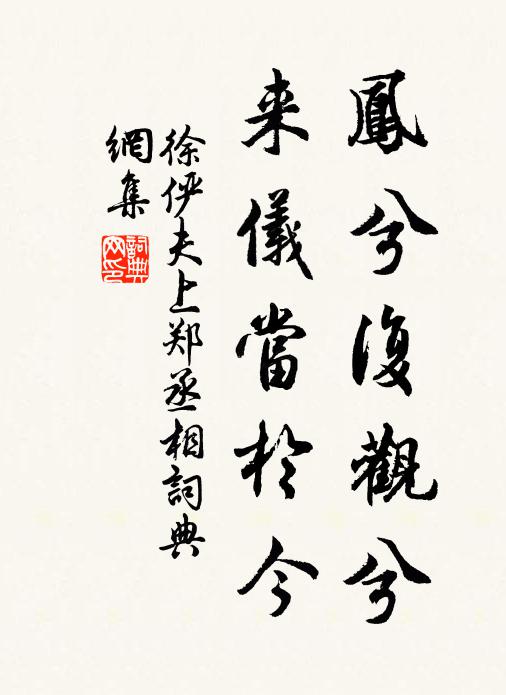 鳳兮復觀兮
来儀當於今
徐俨夫上郑丞相詞典
網集
詞典
网印